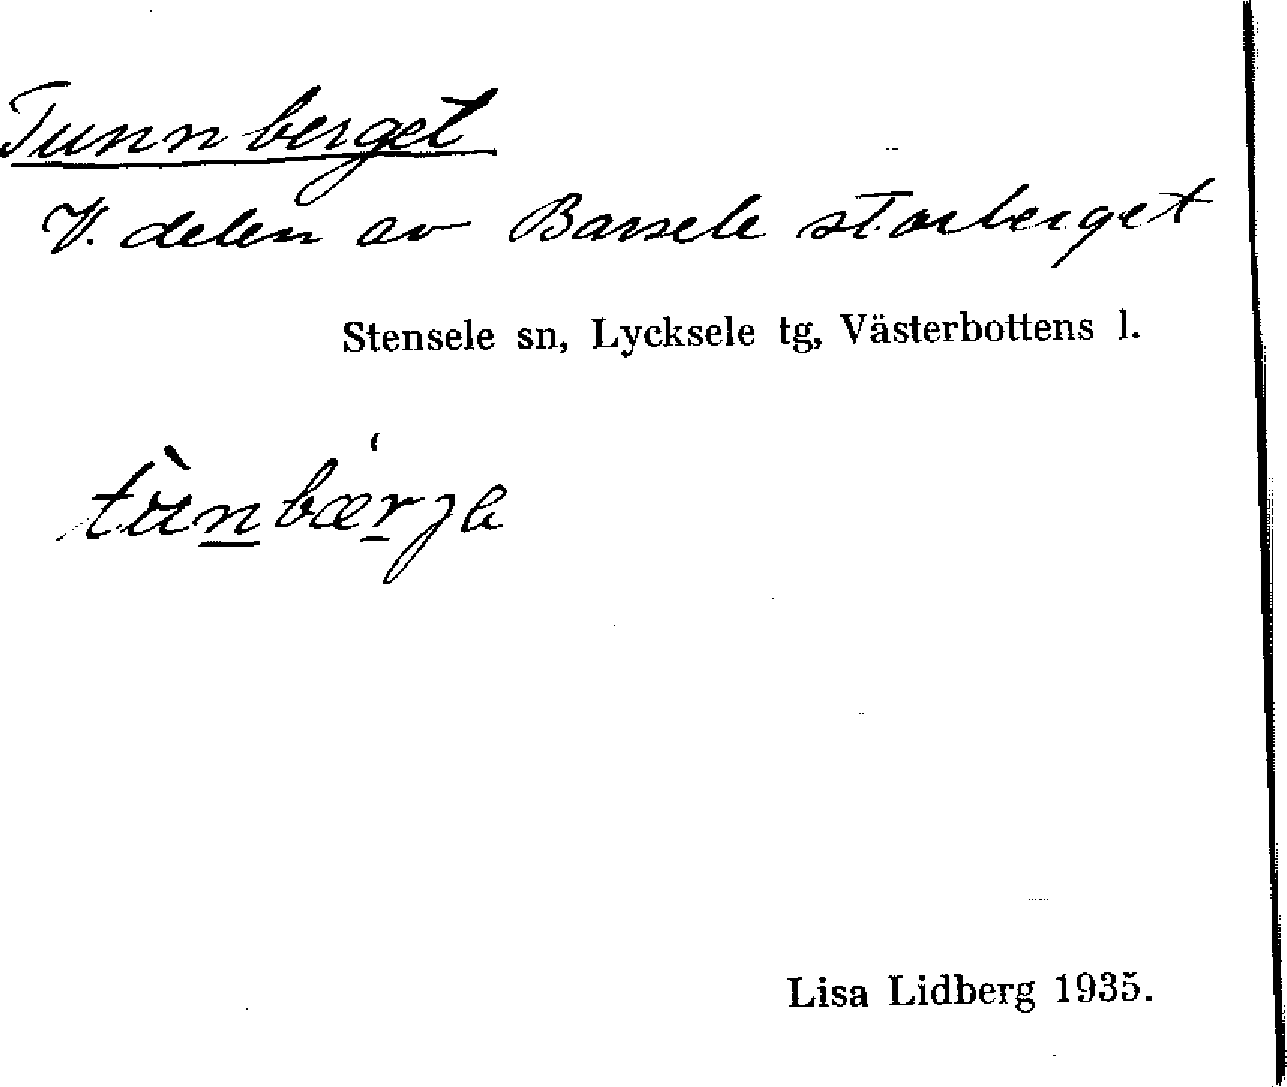 Tunnberget
V. delen av Barsele storberget
Stensele sn, Lycksele tg, Västerbottens l.
tùnbærjɐ
Lisa Lidberg 1935.